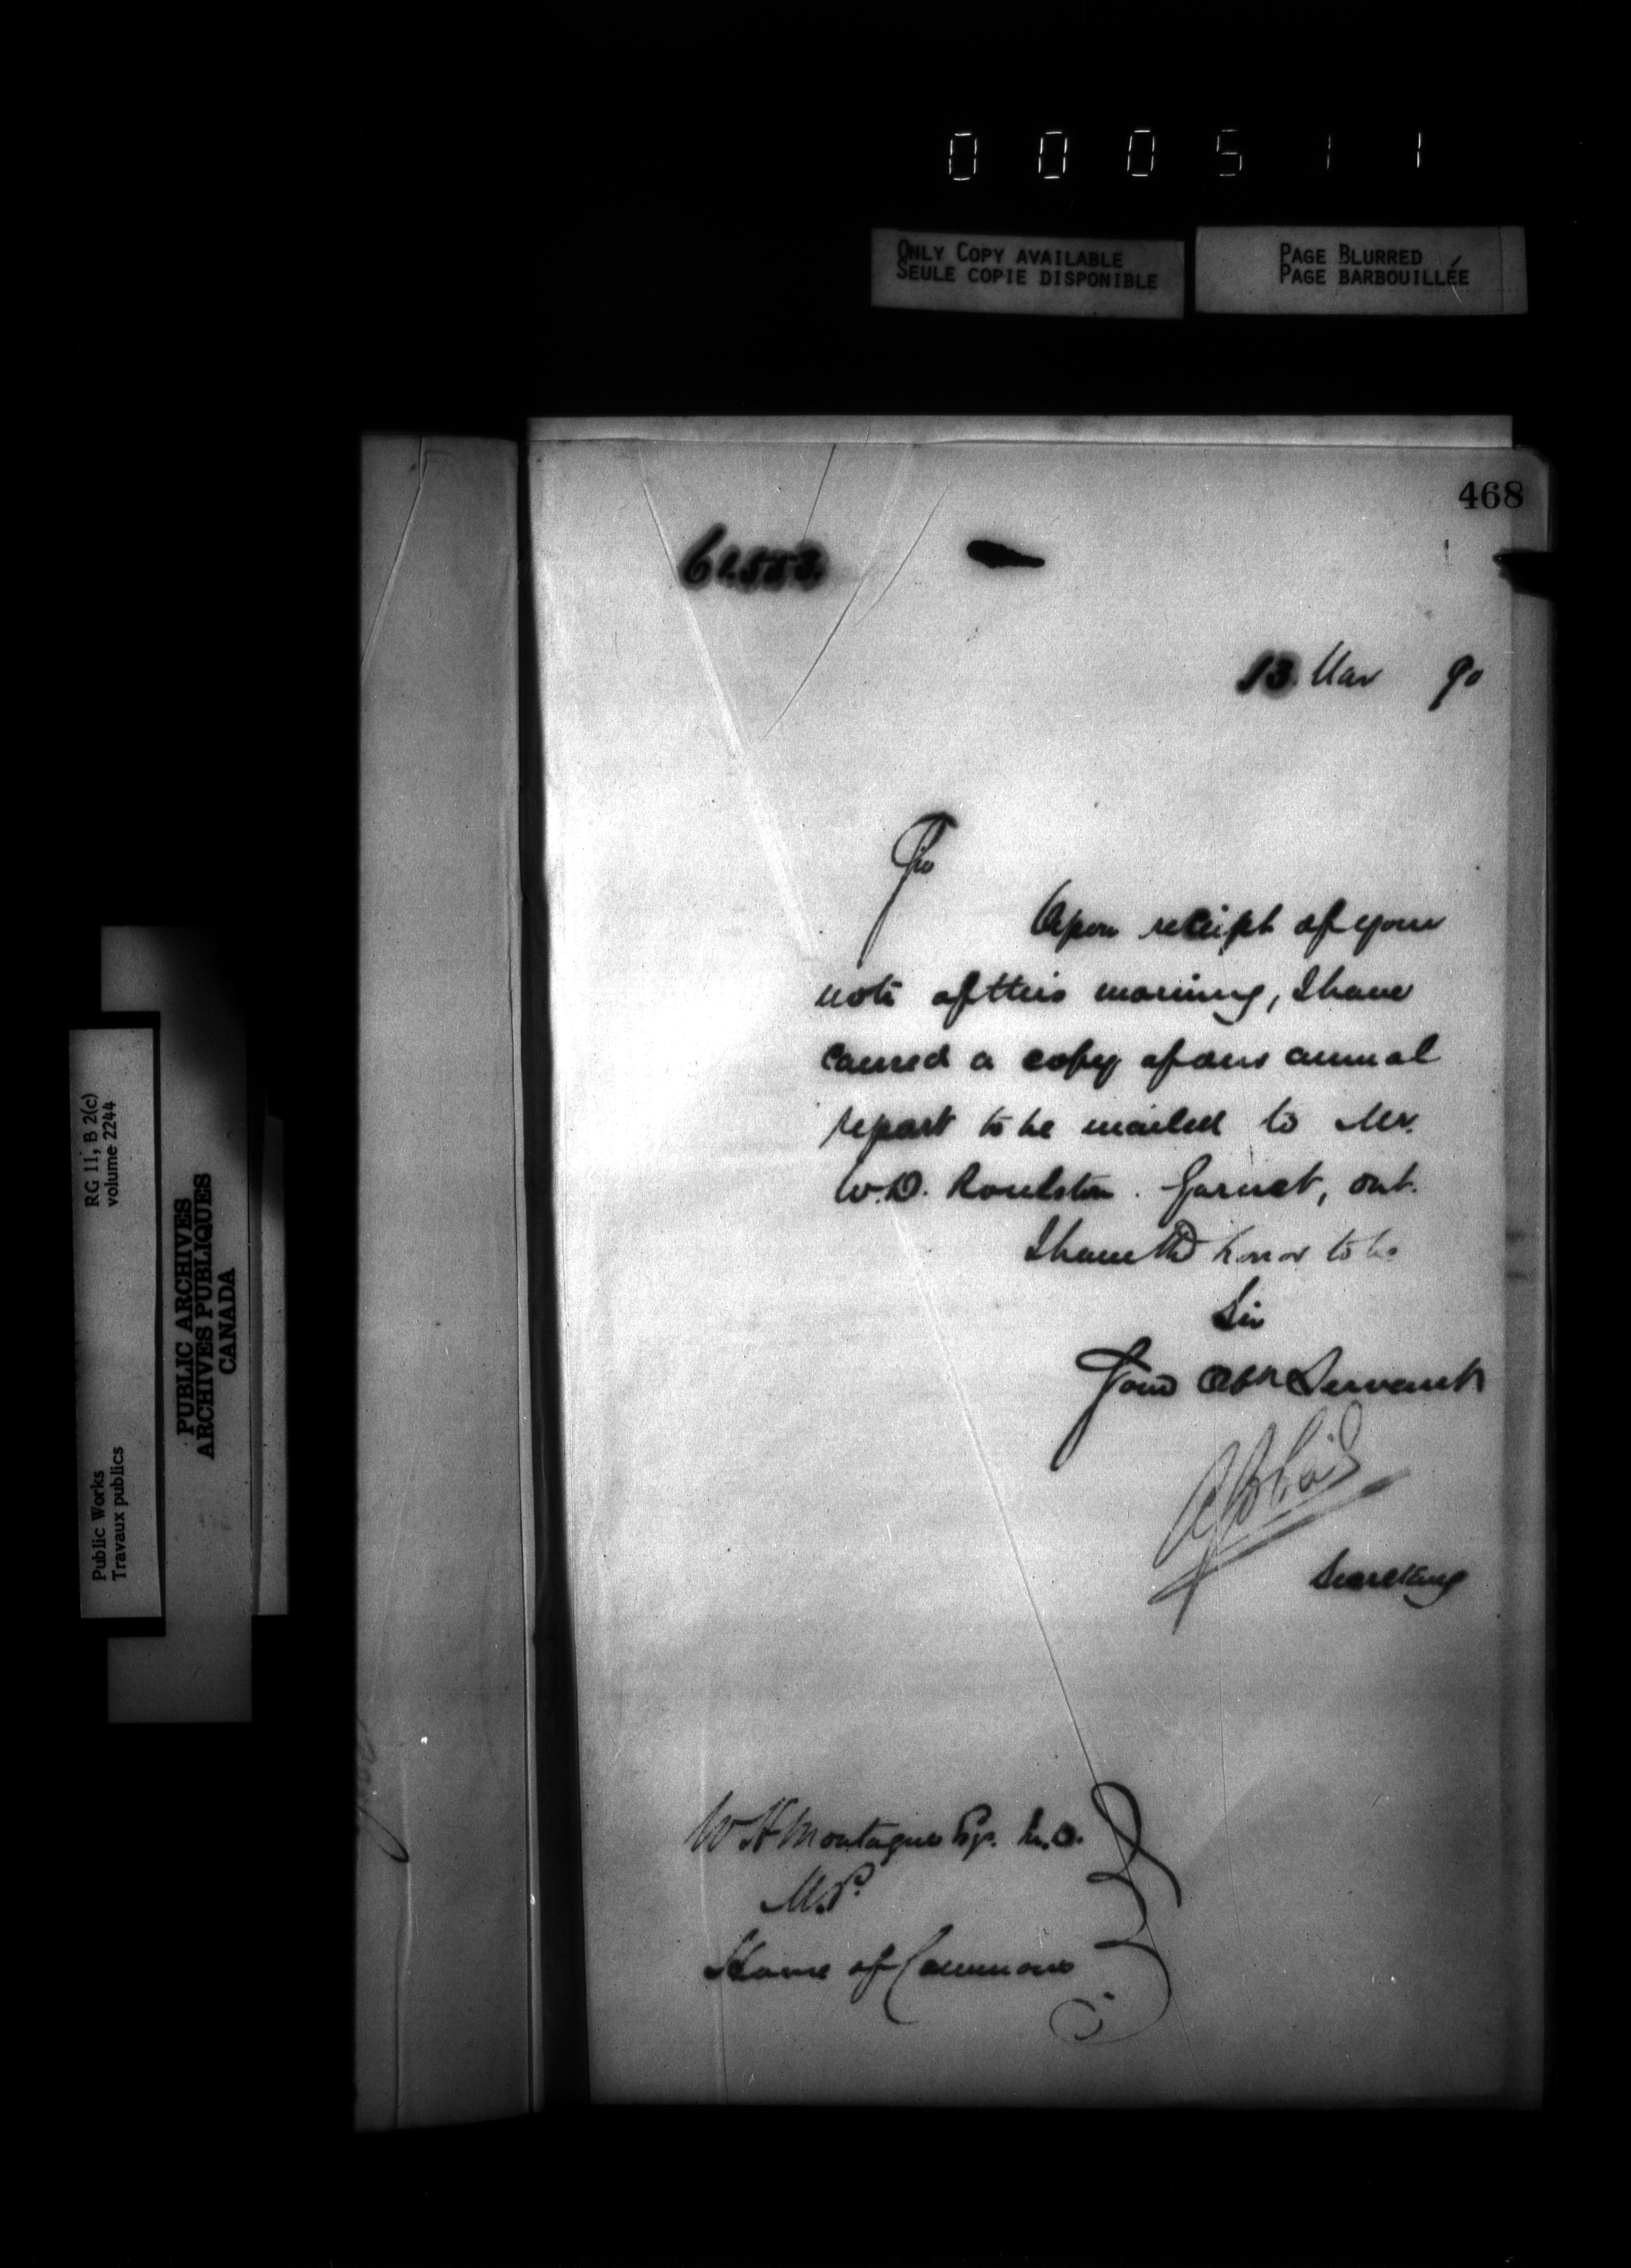 000511
ONLY COPY AVAILABLE
SEULE COPIE DISPONIBLE
PAGE BLURRED
PAGE BARBOUILLÉE
468
61553.
13 Mar 90
Sir
Upon receipt of your
note of this morning, I have
caused a copy of our annual
report to be mailed to Mr.
W.D. Roulston. Garnet, Ont.
I have the honor to be
Sir
Your Obt Servant
Secretary
W H Montague Esq. M.D.
M.P.
House of Commons
RG 11, B 2(c)
volume 2244
Public Works
Travaux publics
PUBLIC ARCHIVES
ARCHIVES PUBLIQUES
CANADA